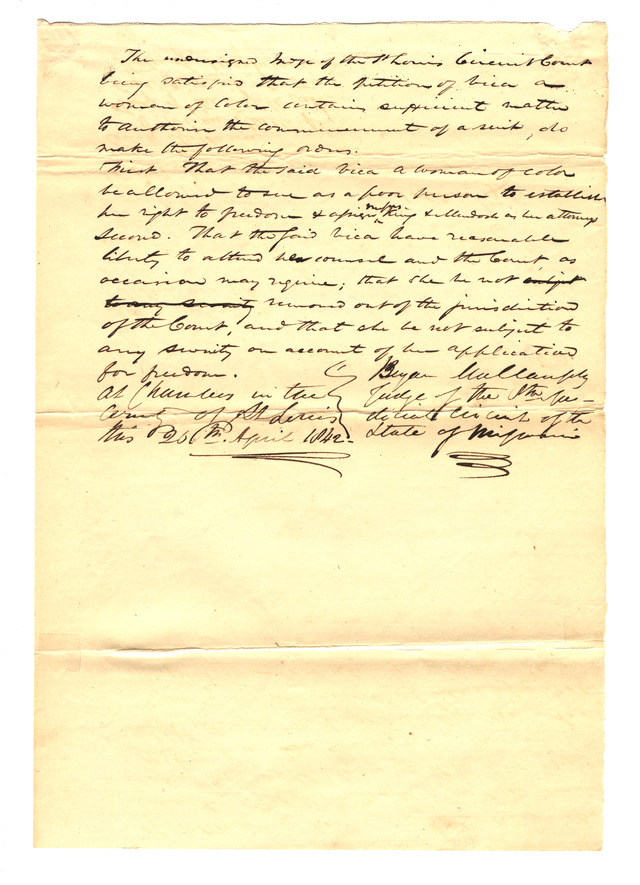 The undersigned Judge of the St Louis Circuit Court
being satisfied that the petition of Vica a
woman of color contains sufficient matter
to authorise the commencement of a suit, do
make the following orders.
First. That the said Vica a woman of color
be allowed to sue as a poor person to establish
her right to freedom & assign Messrs King & Murdoch as her attorneys
Second. That the said Vica have reasonable
liberty to attend her counsel and the Court, as
occasion may require; that she be not subject
to any security removed out of the jurisdiction
of the Court, and that she be not subject to
any severity on account of her application
for freedom.
At Chambers in the
County of St Louis
this 20th. April 1842.
Bryan Mullanphy
Judge of the 8th Ju-
dicial Circuit of the
State of Missouri